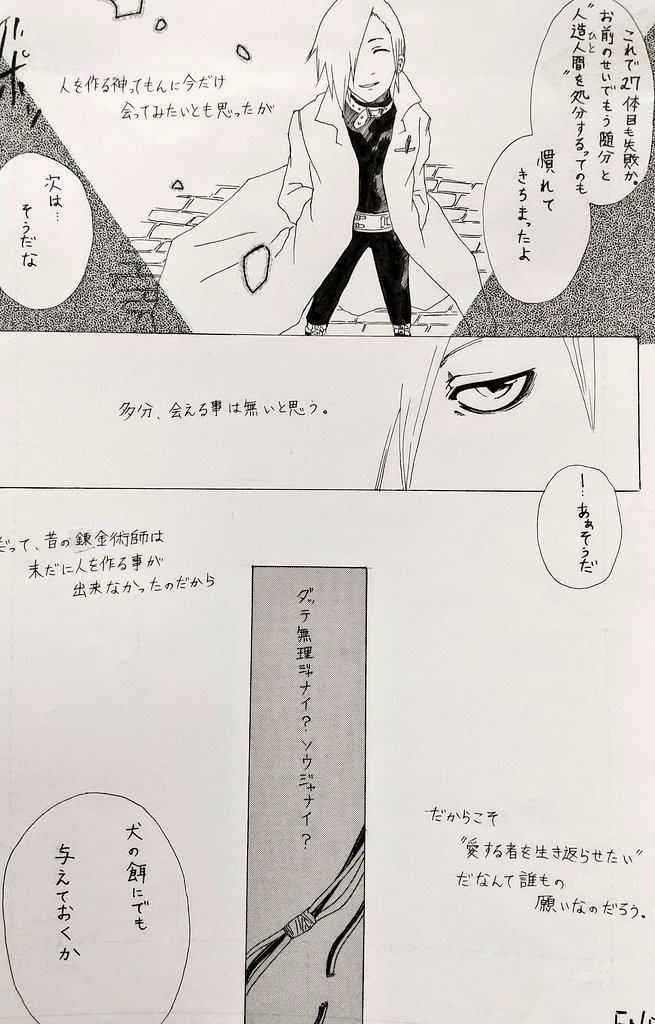 これで27体目も失敗か。
お前のせいでもう随分と
ひと
“人造人間を処分するってのも
慣れて
きちまったよ
人を作る神ってもんに今だけ
会ってみたいとも思ったが
次は…
そうだな
多分、会える事は無いと思う。
ー…あぁそうだ
だって、昔の錬金術師は
未だに人を作る事が
出来なかったのだから
ダッテ無理ジャナイ？ソウジャナイ？
だからこそ
“愛する者を生き返らせたい”
だなんて誰もの
願いなのだろう。
犬の餌にでも
与えておくか